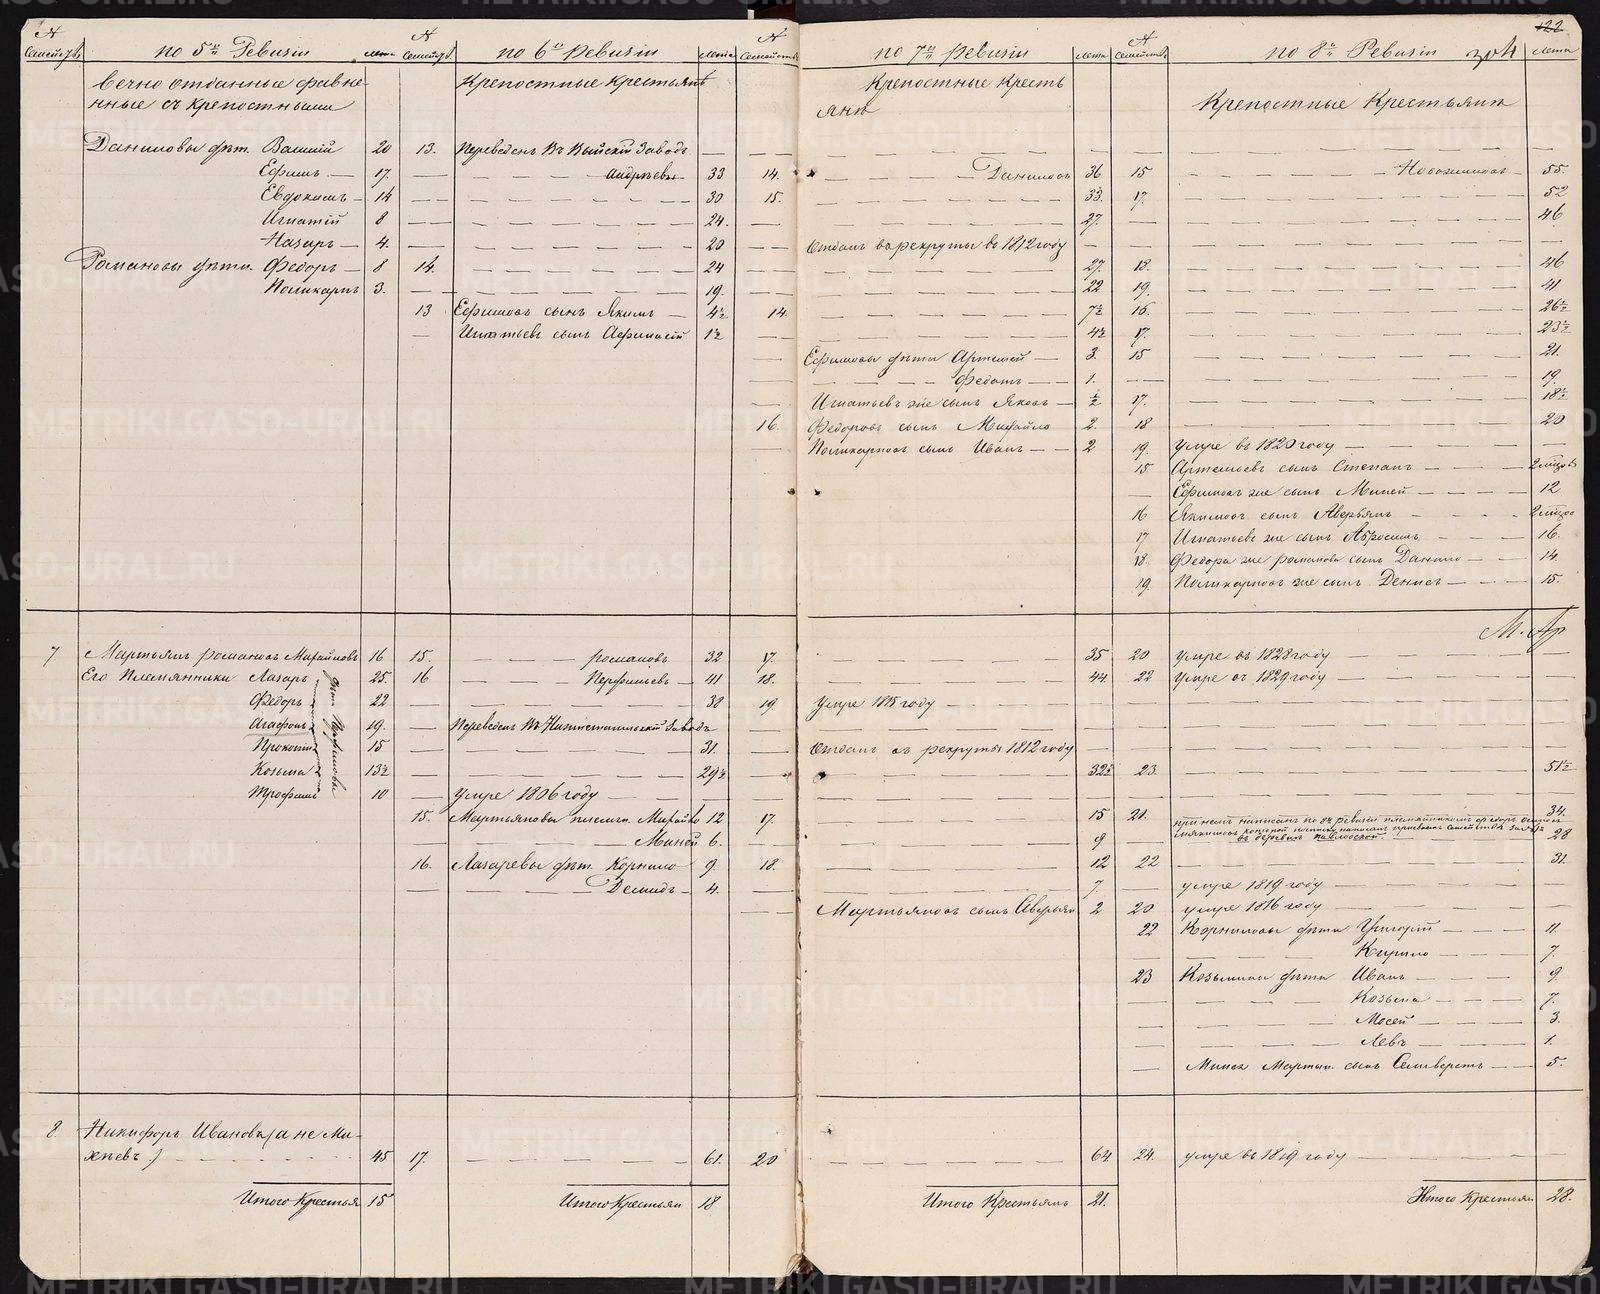 № Семейств по 5й Ревизии лета № Семейств по 6й ревизии лета № Семейств по 7й ревизии лета № Семейств по 8й Ревизии лета 122
Вечно отданные сравне- Крепостные Крестьянѣ Крепостные Кресть
нные съ крепостными янѣ Крепостные Крестьянѣ
Даниловы дѣт. Василій 20 13. Переведенъ Въ Выйскій Заводъ
Ефимъ 17. Андрѣевы 33 14. Даниловъ 36 15 55.
Евдокимъ 14 30 15. 33. 17. 52
Игнатій 8 24. 27. 46
Назаръ 4. 20 Отданъ в рекруты въ 1812 году
Романовы дѣти Федоръ 8 14. 24 27. 18. 46
Поликарпъ 3. 19. 22 19. 41
13 Ефимовъ сынъ Якимъ 4½ 14. 7½ 16. 26½
Игнатьевъ сынъ Афанасій 1½ 4½ 17. 23½
Ефимовы дѣти Артемей 3. 15 21.
Федотъ 1. 19.
Игнатьевъ же сынъ Яковъ ½ 17. 18½
16. Федоровъ сынъ Михайло 2. 18 20
Поликарповъ сынъ Иванъ 2 19. умре въ 1820 году
15 Артемьевъ сынъ Степанъ
Ефимовъ же сынъ Миней 12
16 Якимовъ сынъ Аверьянъ
17 Игнатьевъ же сынъ Абросимъ 16.
18. Федора же романова сынъ Данило 14.
19. Поликарповъ же сынъ Денисъ 15.
7 Мартьянъ романовъ Михайловъ 16 15. романовъ 32 17. 35 20 умре въ 1828 году
Его Племянники Лазарь 25. 16 Перфильевъ 41 18. 44 22 умре въ 1829 году
Федоръ 22 38 19 умре 1815 году
Агафонъ 19. Переведенъ Въ Нижнетагильскій Заводъ
Прокопій 15 31. Отданъ въ рекруты 1812 году
Козьма 13½ 29½ 32½ 23. 51½
Трофимъ 10 умре 1806 году
15. Мартьяновы племян. Михайло 12 17 15 21. 34.
Миней 6. 9 28
16. Лазаревы дѣт. Корнило 9. 18. 12 22 31.
Демидъ 4. 7. умре 1819 году
Мартьяновъ сынъ Аверьян 2 20 умре 1816 году
22 Корниловы дѣти Григорій 11.
Кирило 7.
23 Козьмины дѣти Иванъ 9
Козьма 7.
Мосей 3.
Левъ 1.
Минея Мартын. сынъ Селиверстъ 5.
8. Никифоръ Ивановъ (а не Ми-
хѣевъ) 45 17. 61. 20 64 24. умре въ 1819 году
Итого Крестья 15 Итого Крестьян 18 Итого Крестьянъ 21. Итого Крестьян 28.
METRIKI.GASO-URAL.RU